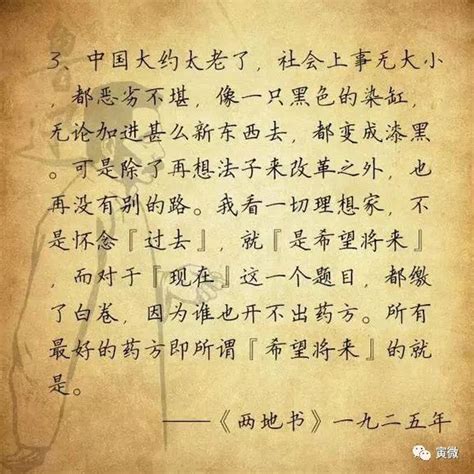 3、中国大约太老了，社会上事无大小
，都恶劣不堪，像一只黑色的染缸，
无论加进甚么新东西去，都变成漆黑
。可是除了再想法子来改革之外，也
再没有别的路。我看一切理想家，不
是怀念『过去』，就『是希望将来』
，而对于『现在』这一个题目，都缴
了白卷，因为谁也开不出药方。所有
最好的药方即所谓『希望将来』的就
是。
——《两地书》一九二五年
寅微